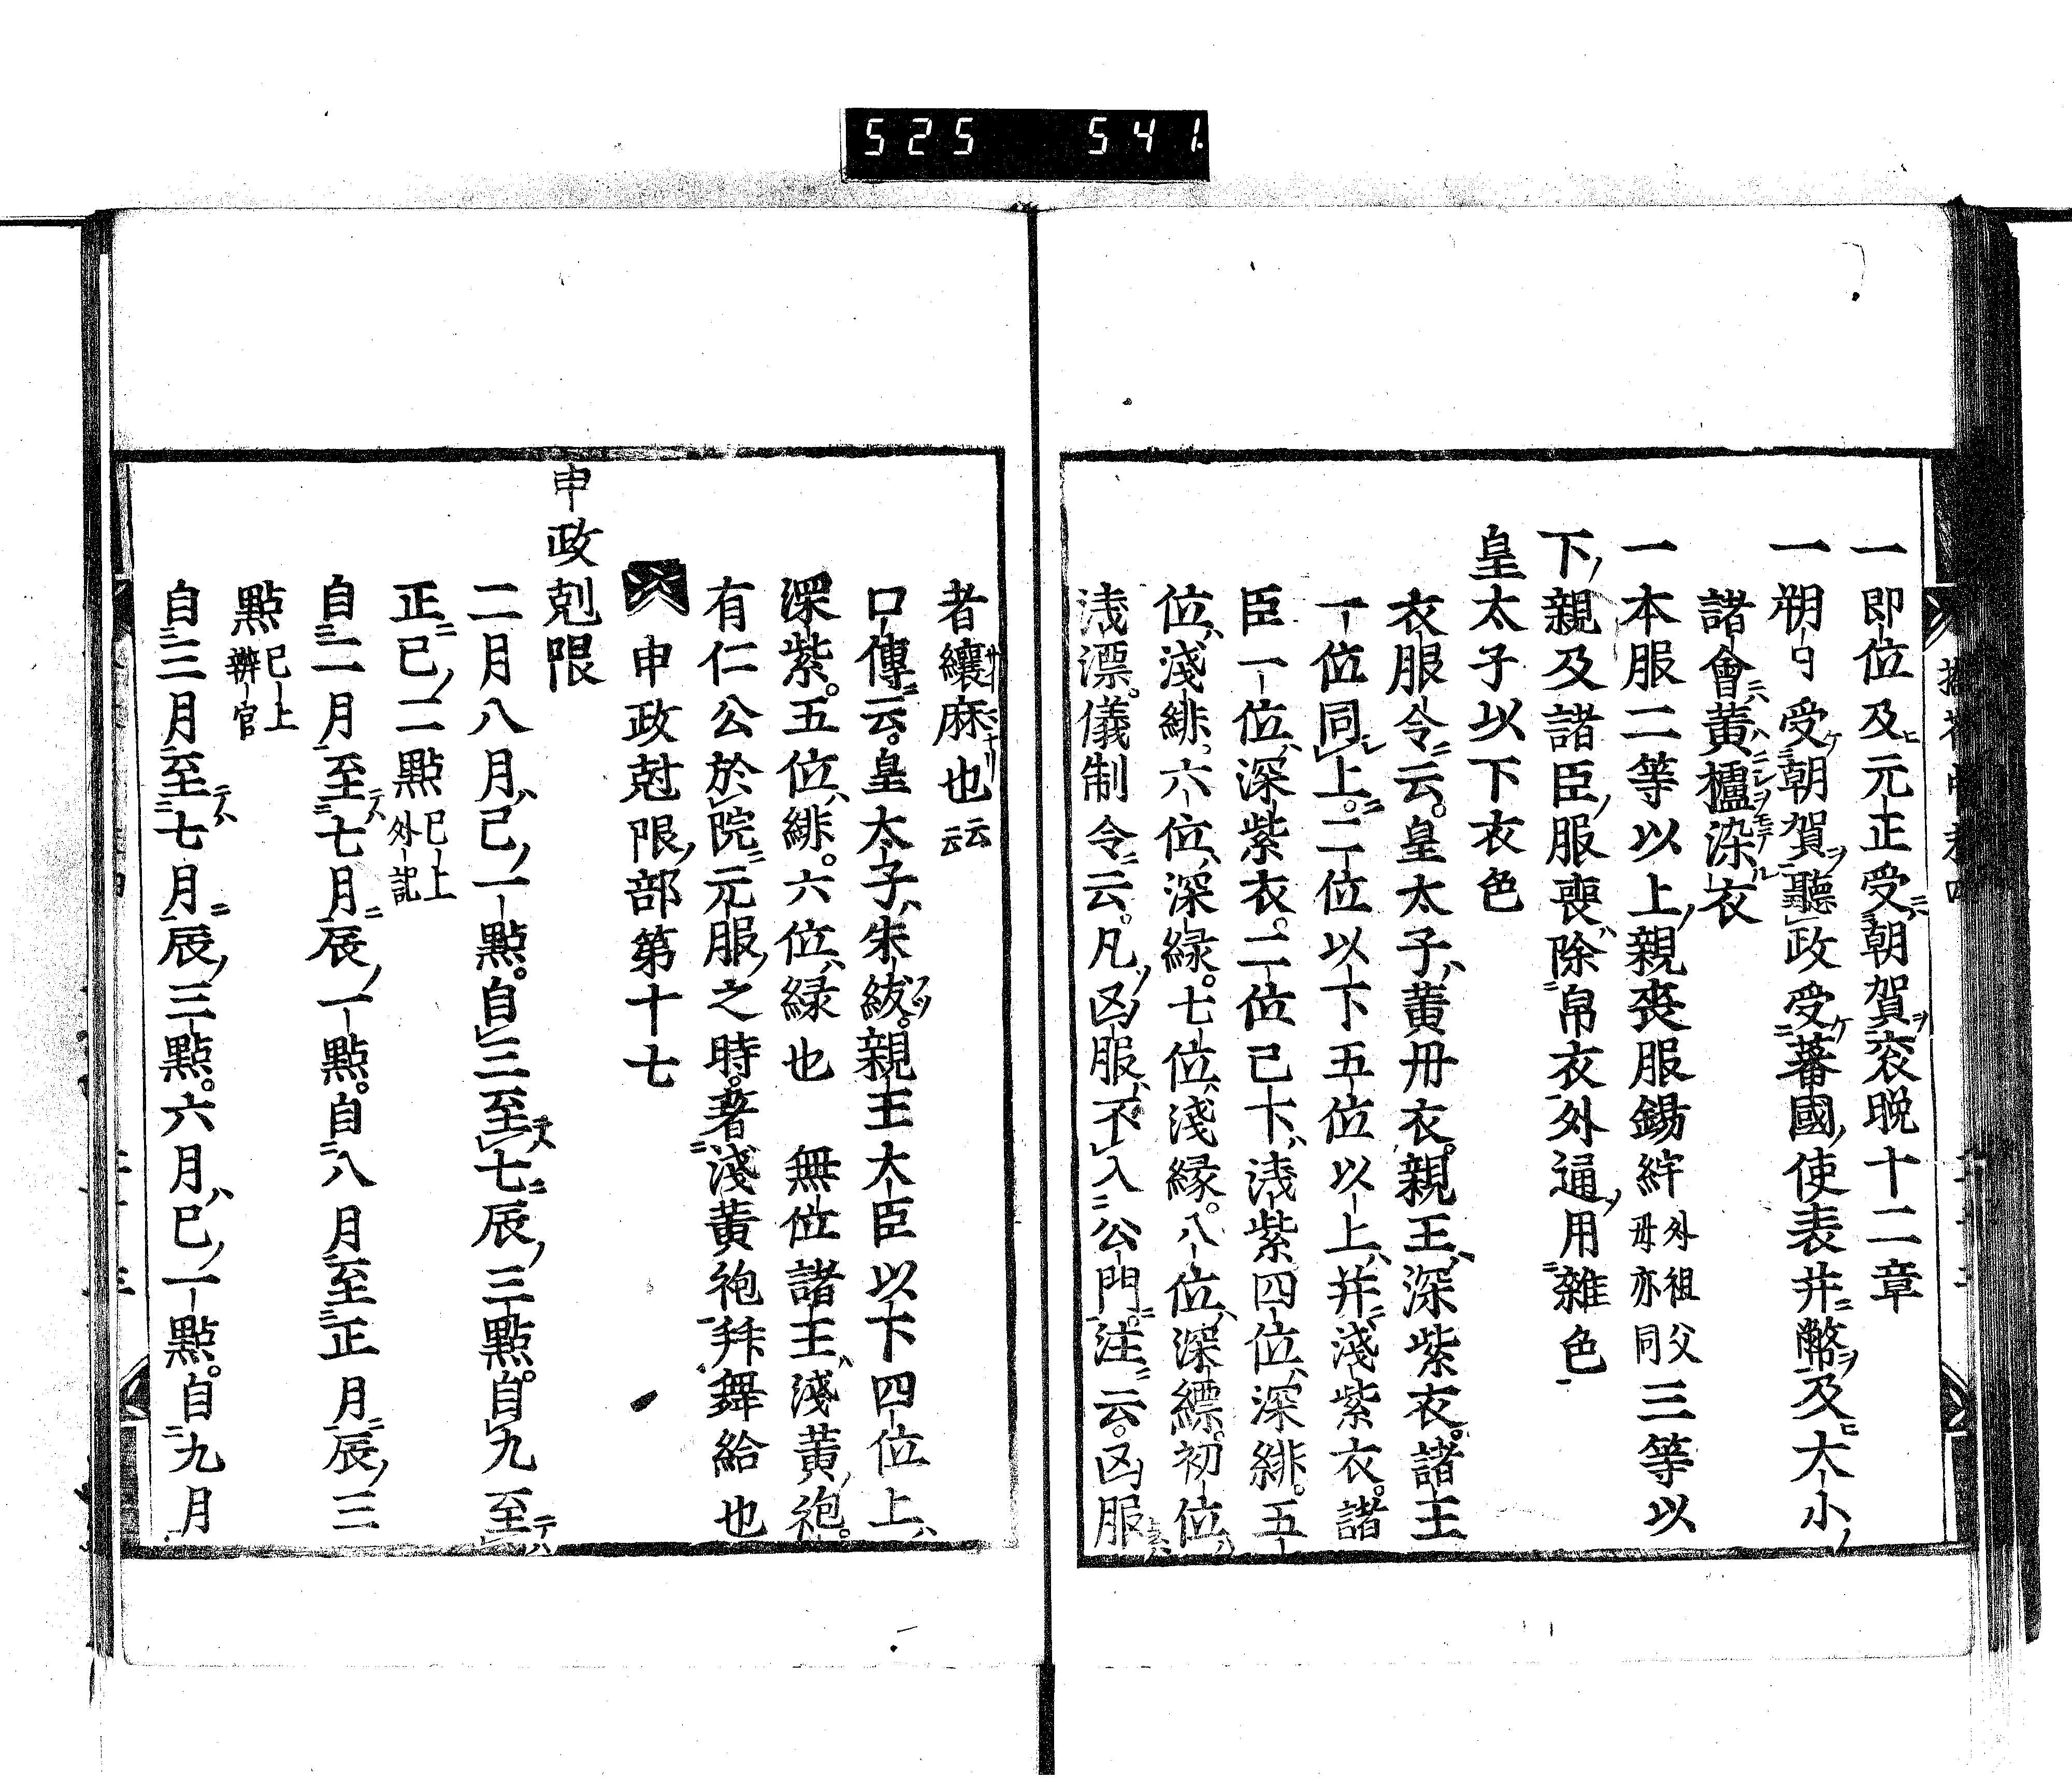 525 541
一即位及元正受朝賀袞晚十二章
一朔日受朝賀聽政受蕃國使表井幣及大小
諸會黃櫨染衣
一本服二等以上親喪服錫紵外祖父母亦同三等以
下親及諸臣服喪除帛衣外通用雜色
皇太子以下衣色
衣服令云。皇太子黃丹衣。親王深紫衣。諸王
一位同上。二位以下五位以上并淺紫衣。諸
臣一位深紫衣。二位已下淺紫四位深緋。五
位淺緋。六位深緑。七位淺緑。八位深縹。初位
淺漂。儀制令云。凡凶服不入公門。注云。凶服
者纕麻也云云
口傳云。皇太子朱紱。親王大臣以下四位上
深紫。五位緋。六位緑也 無位諸王淺黃袍。
有仁公於院元服之時。著淺黃袍拜舞給也
申政尅限部第十七
申政尅限
二月八月巳一點。自三至七辰三點。自九至
正巳二點巳上外記
自二月至七月辰一點。自八月至正月辰三
點巳上辨官
自三月至七月辰三點。六月巳一點。自九月